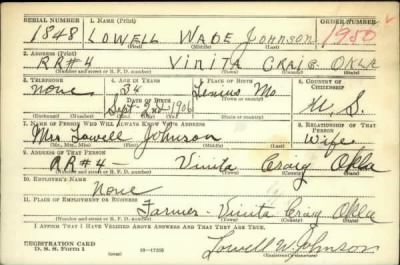 SERIAL NUMBER 1. NAME (Print) ORDER NUMBER
1848 LOWELL WADE JOHNSON 1950
(First) (Middle) (Last)
2. ADDRESS (Print)
RR#4 VINITA CRAIG OKLA
(Number and street or R. F. D. number) (Town) (County) (State)
3. TELEPHONE 4. AGE IN YEARS 5. PLACE OF BIRTH 6. COUNTRY OF CITIZENSHIP
None 34 Mo
DATE OF BIRTH
Sept 1906 U. S.
(Mo.) (Day) (Yr.) (State or country)
7. NAME OF PERSON WHO WILL ALWAYS KNOW YOUR ADDRESS 8. RELATIONSHIP OF THAT PERSON
Mrs Lowell Johnson Wife
(Mr., Mrs., Miss) (First) (Middle) (Last)
9. ADDRESS OF THAT PERSON
RR#4 - Vinita Craig Okla
(Number and street or R. F. D. number) (Town) (County) (State)
10. EMPLOYER'S NAME
None
11. PLACE OF EMPLOYMENT OR BUSINESS
Farmer - Vinita Craig Okla
(Number and street or R. F. D. number) (Town) (County) (State)
I AFFIRM THAT I HAVE VERIFIED ABOVE ANSWERS AND THAT THEY ARE TRUE.
REGISTRATION CARD
D. S. S. Form 1 Lowell W. Johnson
(Registrant's signature)